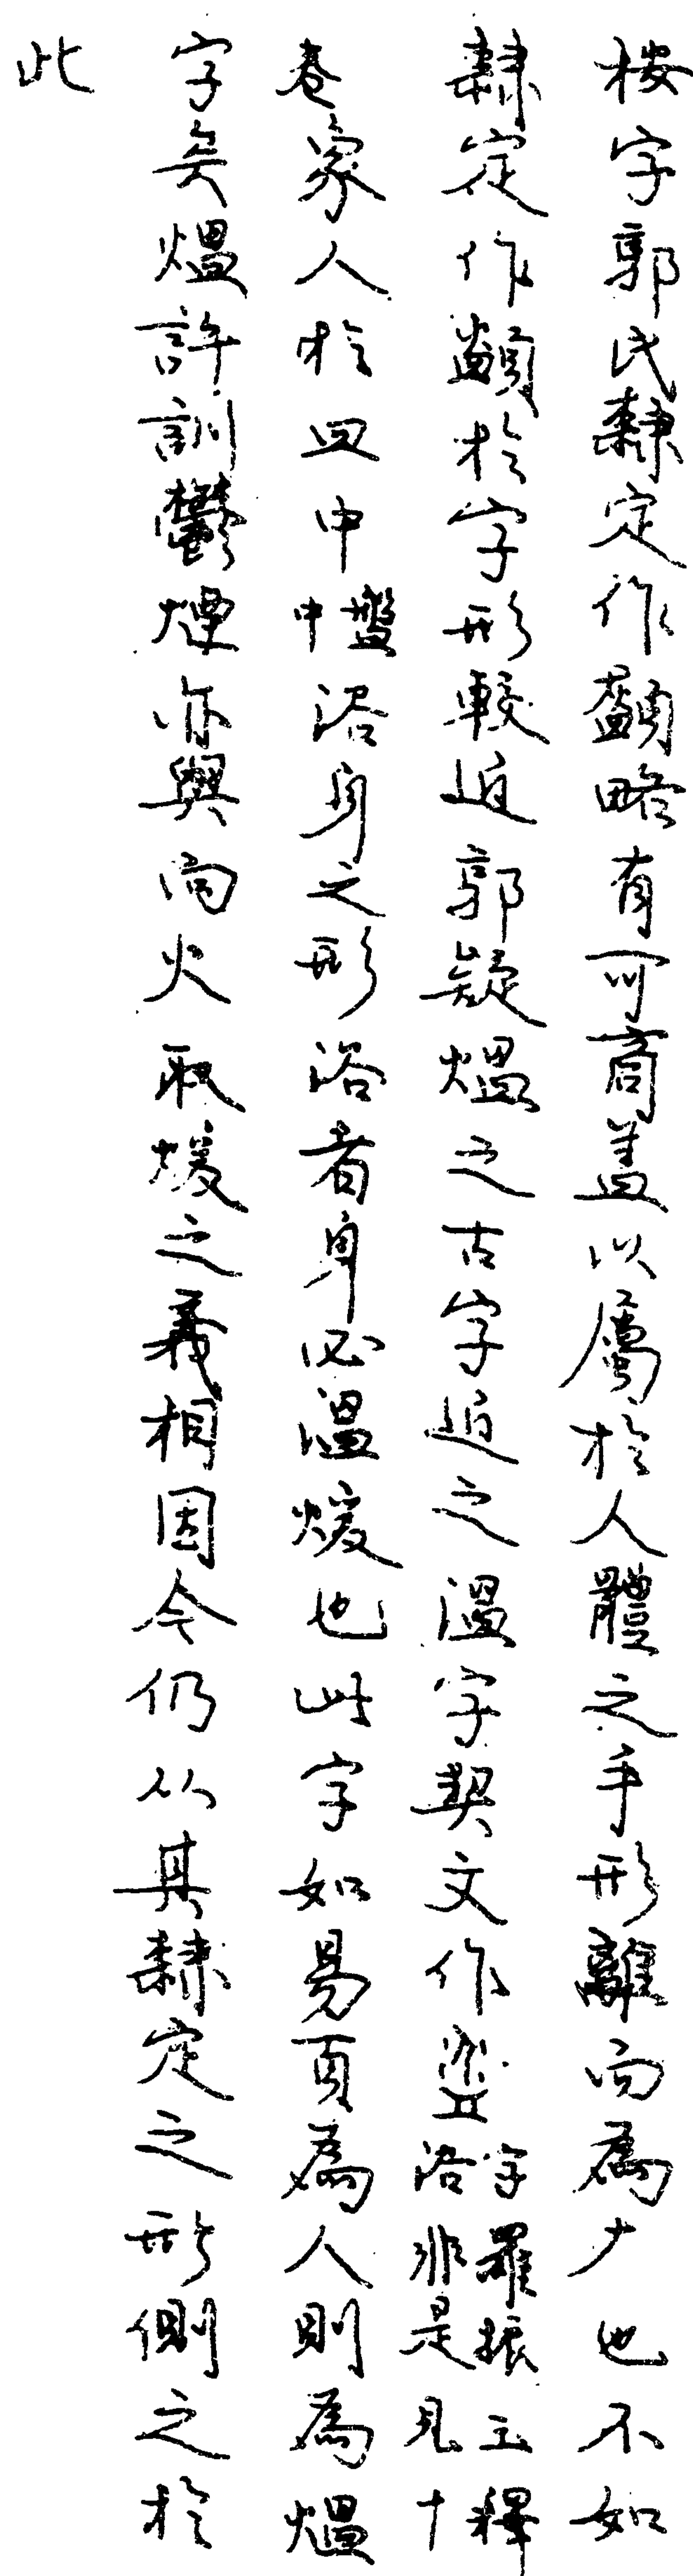 按字郭氏隸定作𩕄略有可商蓋以屬於人體之手形離而為屮也不如
隸定作顓於字形較近郭疑熅之古字近之溫字契文作𥁕字羅振玉釋浴非是見十
卷象人於皿中中盤浴身之形浴者身必溫煖也此字如易頁為人則為熅
字矣熅許訓鬱煙亦與向火取煖之義相因今仍从其隸定之形側之於
此